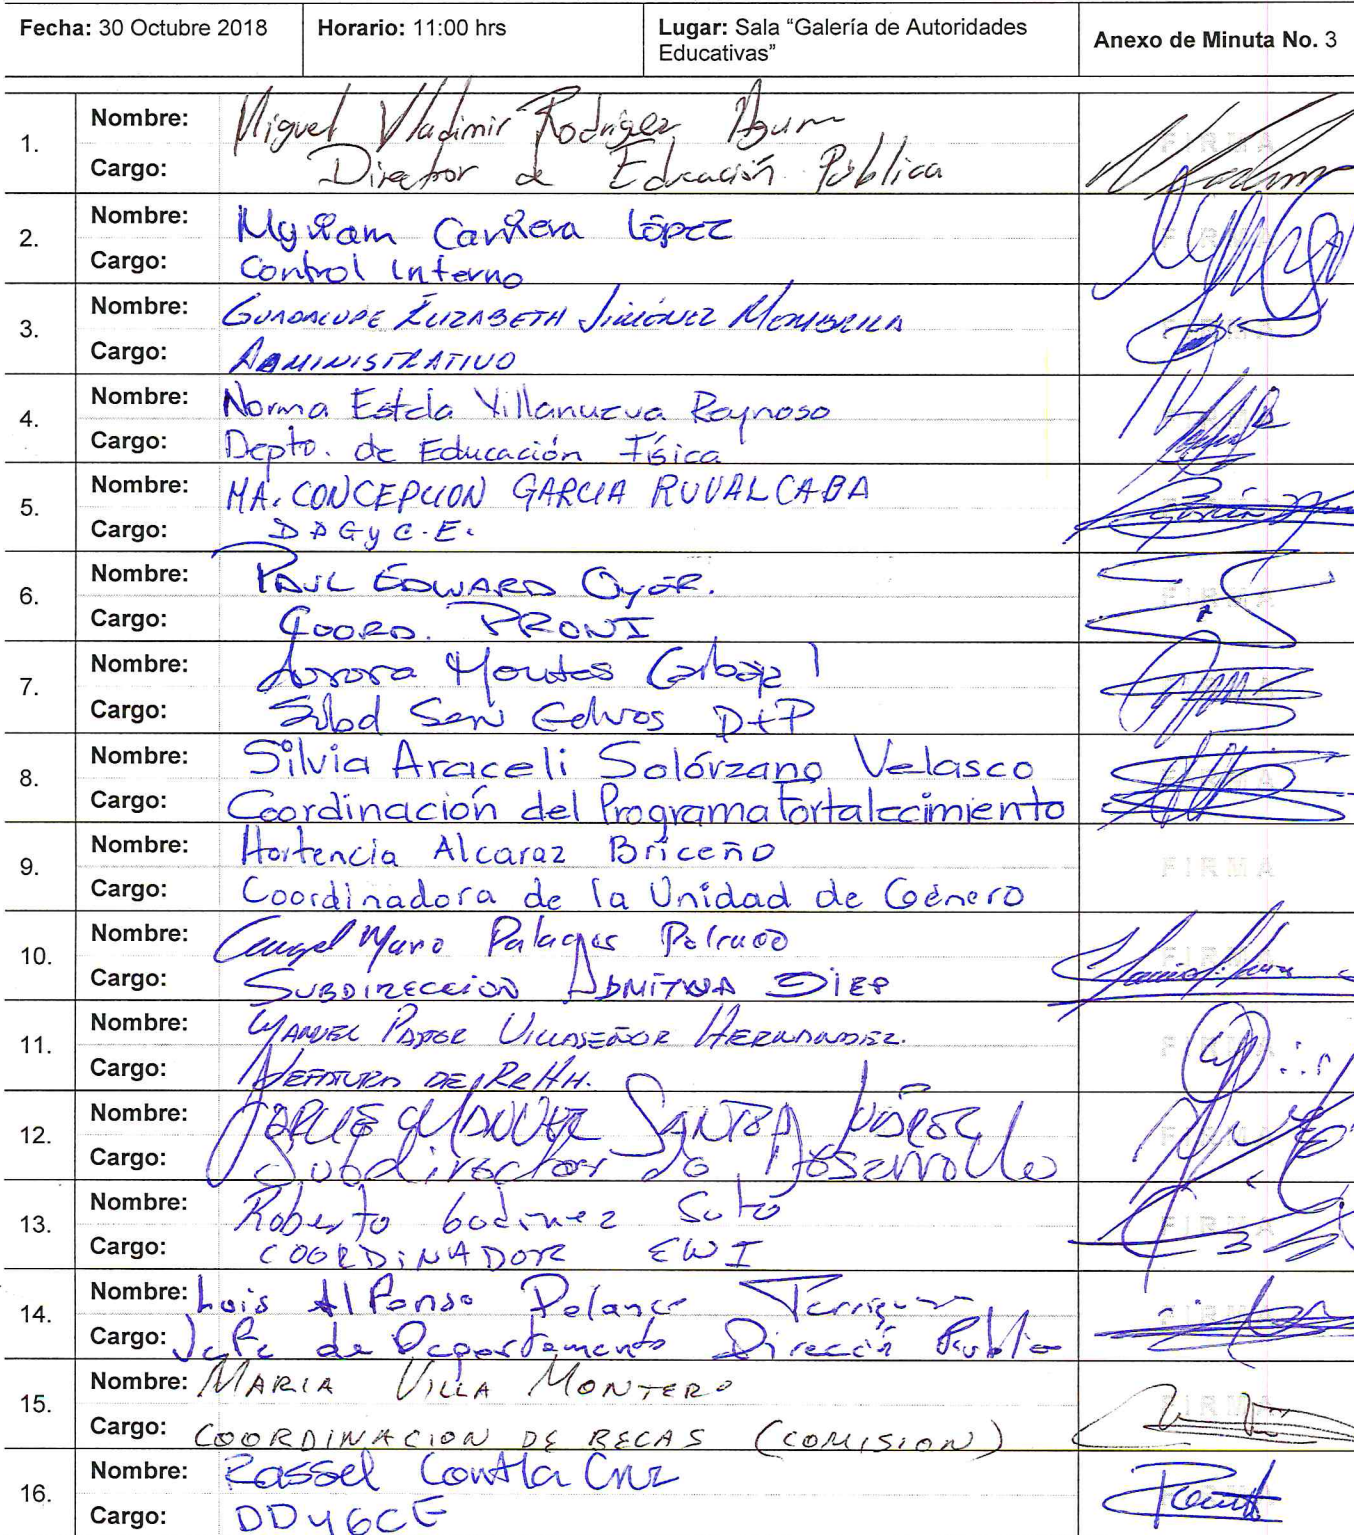 Fecha: 30 Octubre 2018 Horario: 11:00 hrs Lugar: Sala "Galería de Autoridades Educativas" Anexo de Minuta No. 3
1. Nombre: Miguel Vladimir Rodríguez
Cargo: Director de Educación Pública
FIRMA
2. Nombre: Myriam Carrera López
Cargo: Control Interno
3. Nombre: GUADALUPE ELIZABETH JIMÉNEZ
Cargo: ADMINISTRATIVO
4. Nombre: Norma Estela Villanueva Reynoso
Cargo: Depto. de Educación Física
5. Nombre: MA. CONCEPCION GARCIA RUVALCABA
Cargo: D D G y C.E.
6. Nombre: PAUL EDWARD OYER.
Cargo: COORD. PRONI
FIRMA
7. Nombre: Aurora Montes
Cargo: D+P
8. Nombre: Silvia Araceli Solórzano Velasco
Cargo: Coordinación del Programa Fortalecimiento
9. Nombre: Hortencia Alcaraz Briceño
Cargo: Coordinadora de la Unidad de Género
FIRMA
10. Nombre: Palacios
Cargo: SUBDIRECCIÓN
11. Nombre: MANUEL VILLASEÑOR HERNANDEZ.
Cargo: JEFATURA DE RRHH.
12. Nombre: JORGE MANUEL
Cargo: Subdirector de Desarrollo
13. Nombre: Roberto Godinez Soto
Cargo: COORDINADOR
14. Nombre: Luis Alfonso Polanco
Cargo: Jefe de Departamento Dirección
15. Nombre: MARIA VILLA MONTERO
Cargo: COORDINACION DE BECAS (COMISION)
16. Nombre: Rassel Contla Cruz
Cargo: DDyGCE